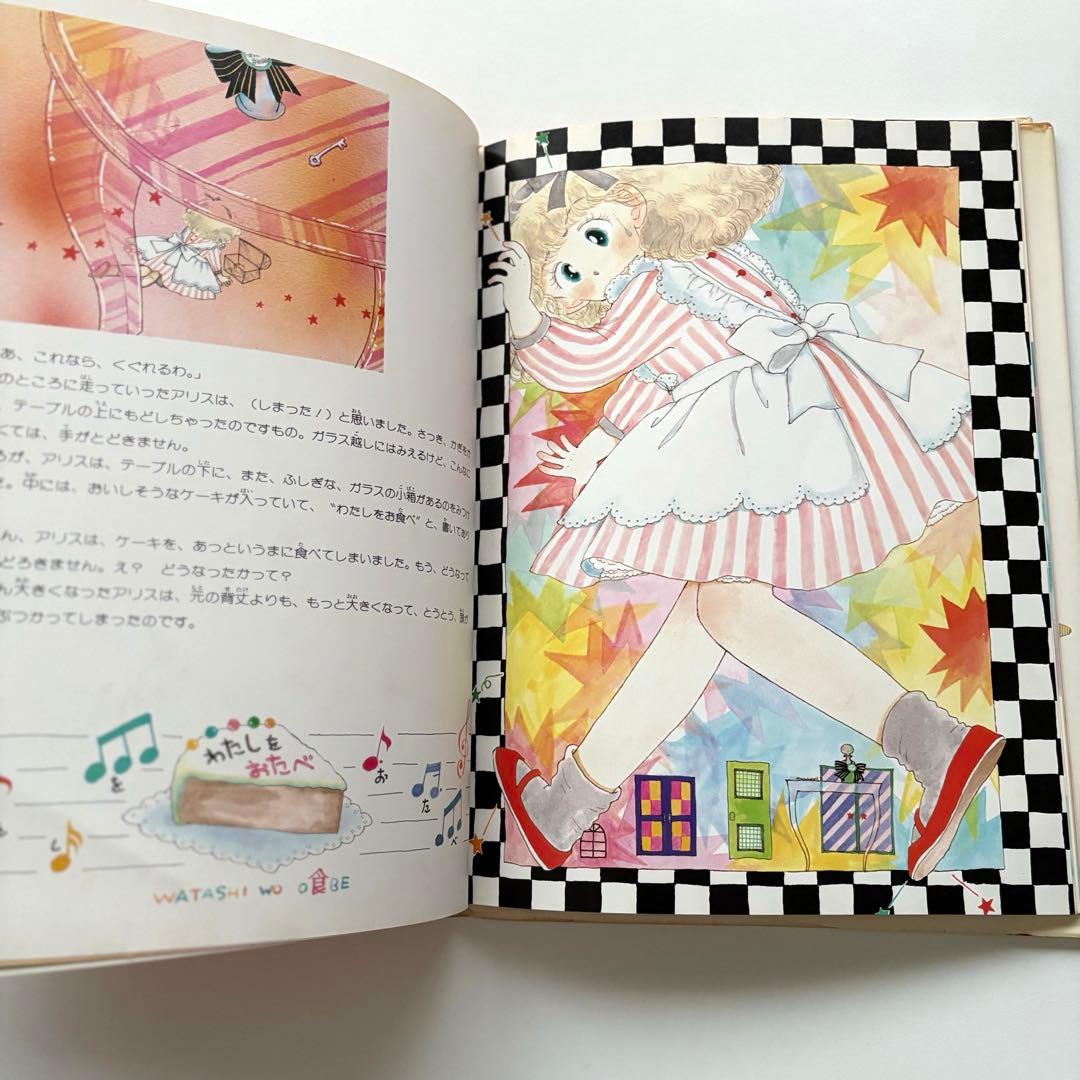 あ、これなら、くぐれるわ。」
のところに走っていったアリスは、(しまった!)と思いました。さっき、かぎをか
、テーブルの上にもどしちゃったのですもの。ガラス越しにはみえるけど、こんなに
くては、手がとどきません。
ろが、アリスは、テーブルの下に、また、ふしぎな、ガラスの小箱があるのをみつけ
。中には、おいしそうなケーキが入っていて、“わたしをお食べ”と、書いてあり
ん、アリスは、ケーキを、あっというまに食べてしまいました。もう、どうなって
どろきません。え? どうなったかって?
ん大きくなったアリスは、元の背丈よりも、もっと大きくなって、とうとう、頭が
ぶつかってしまったのです。
わたしを
おたべ
し
を
お
た
べ
WATASHI WO O食BE